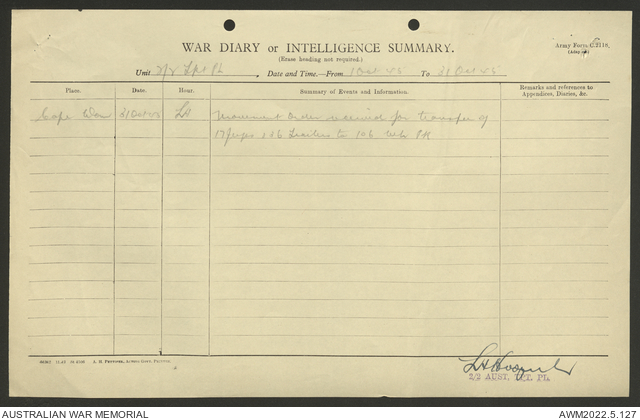 WAR DIARY or INTELLIGENCE SUMMARY.
(Erase heading not required.)
Army Form C.2118.
Unit 2/2 Tpt Pl, Date and Time.—From 1 Oct 45 To 31 Oct 45
Place. Date. Hour. Summary of Events and Information. Remarks and references to Appendices, Diaries, &c.
Cape Wom 31 Oct 45 Movement Order received for transfer of
17 Jeeps & 16 Trailers to 106 Wksp
A. H. Pettifer, Acting Govt. Printer.
2/2 AUST. TPT. PL.
AUSTRALIAN WAR MEMORIAL
AWM2022.5.127